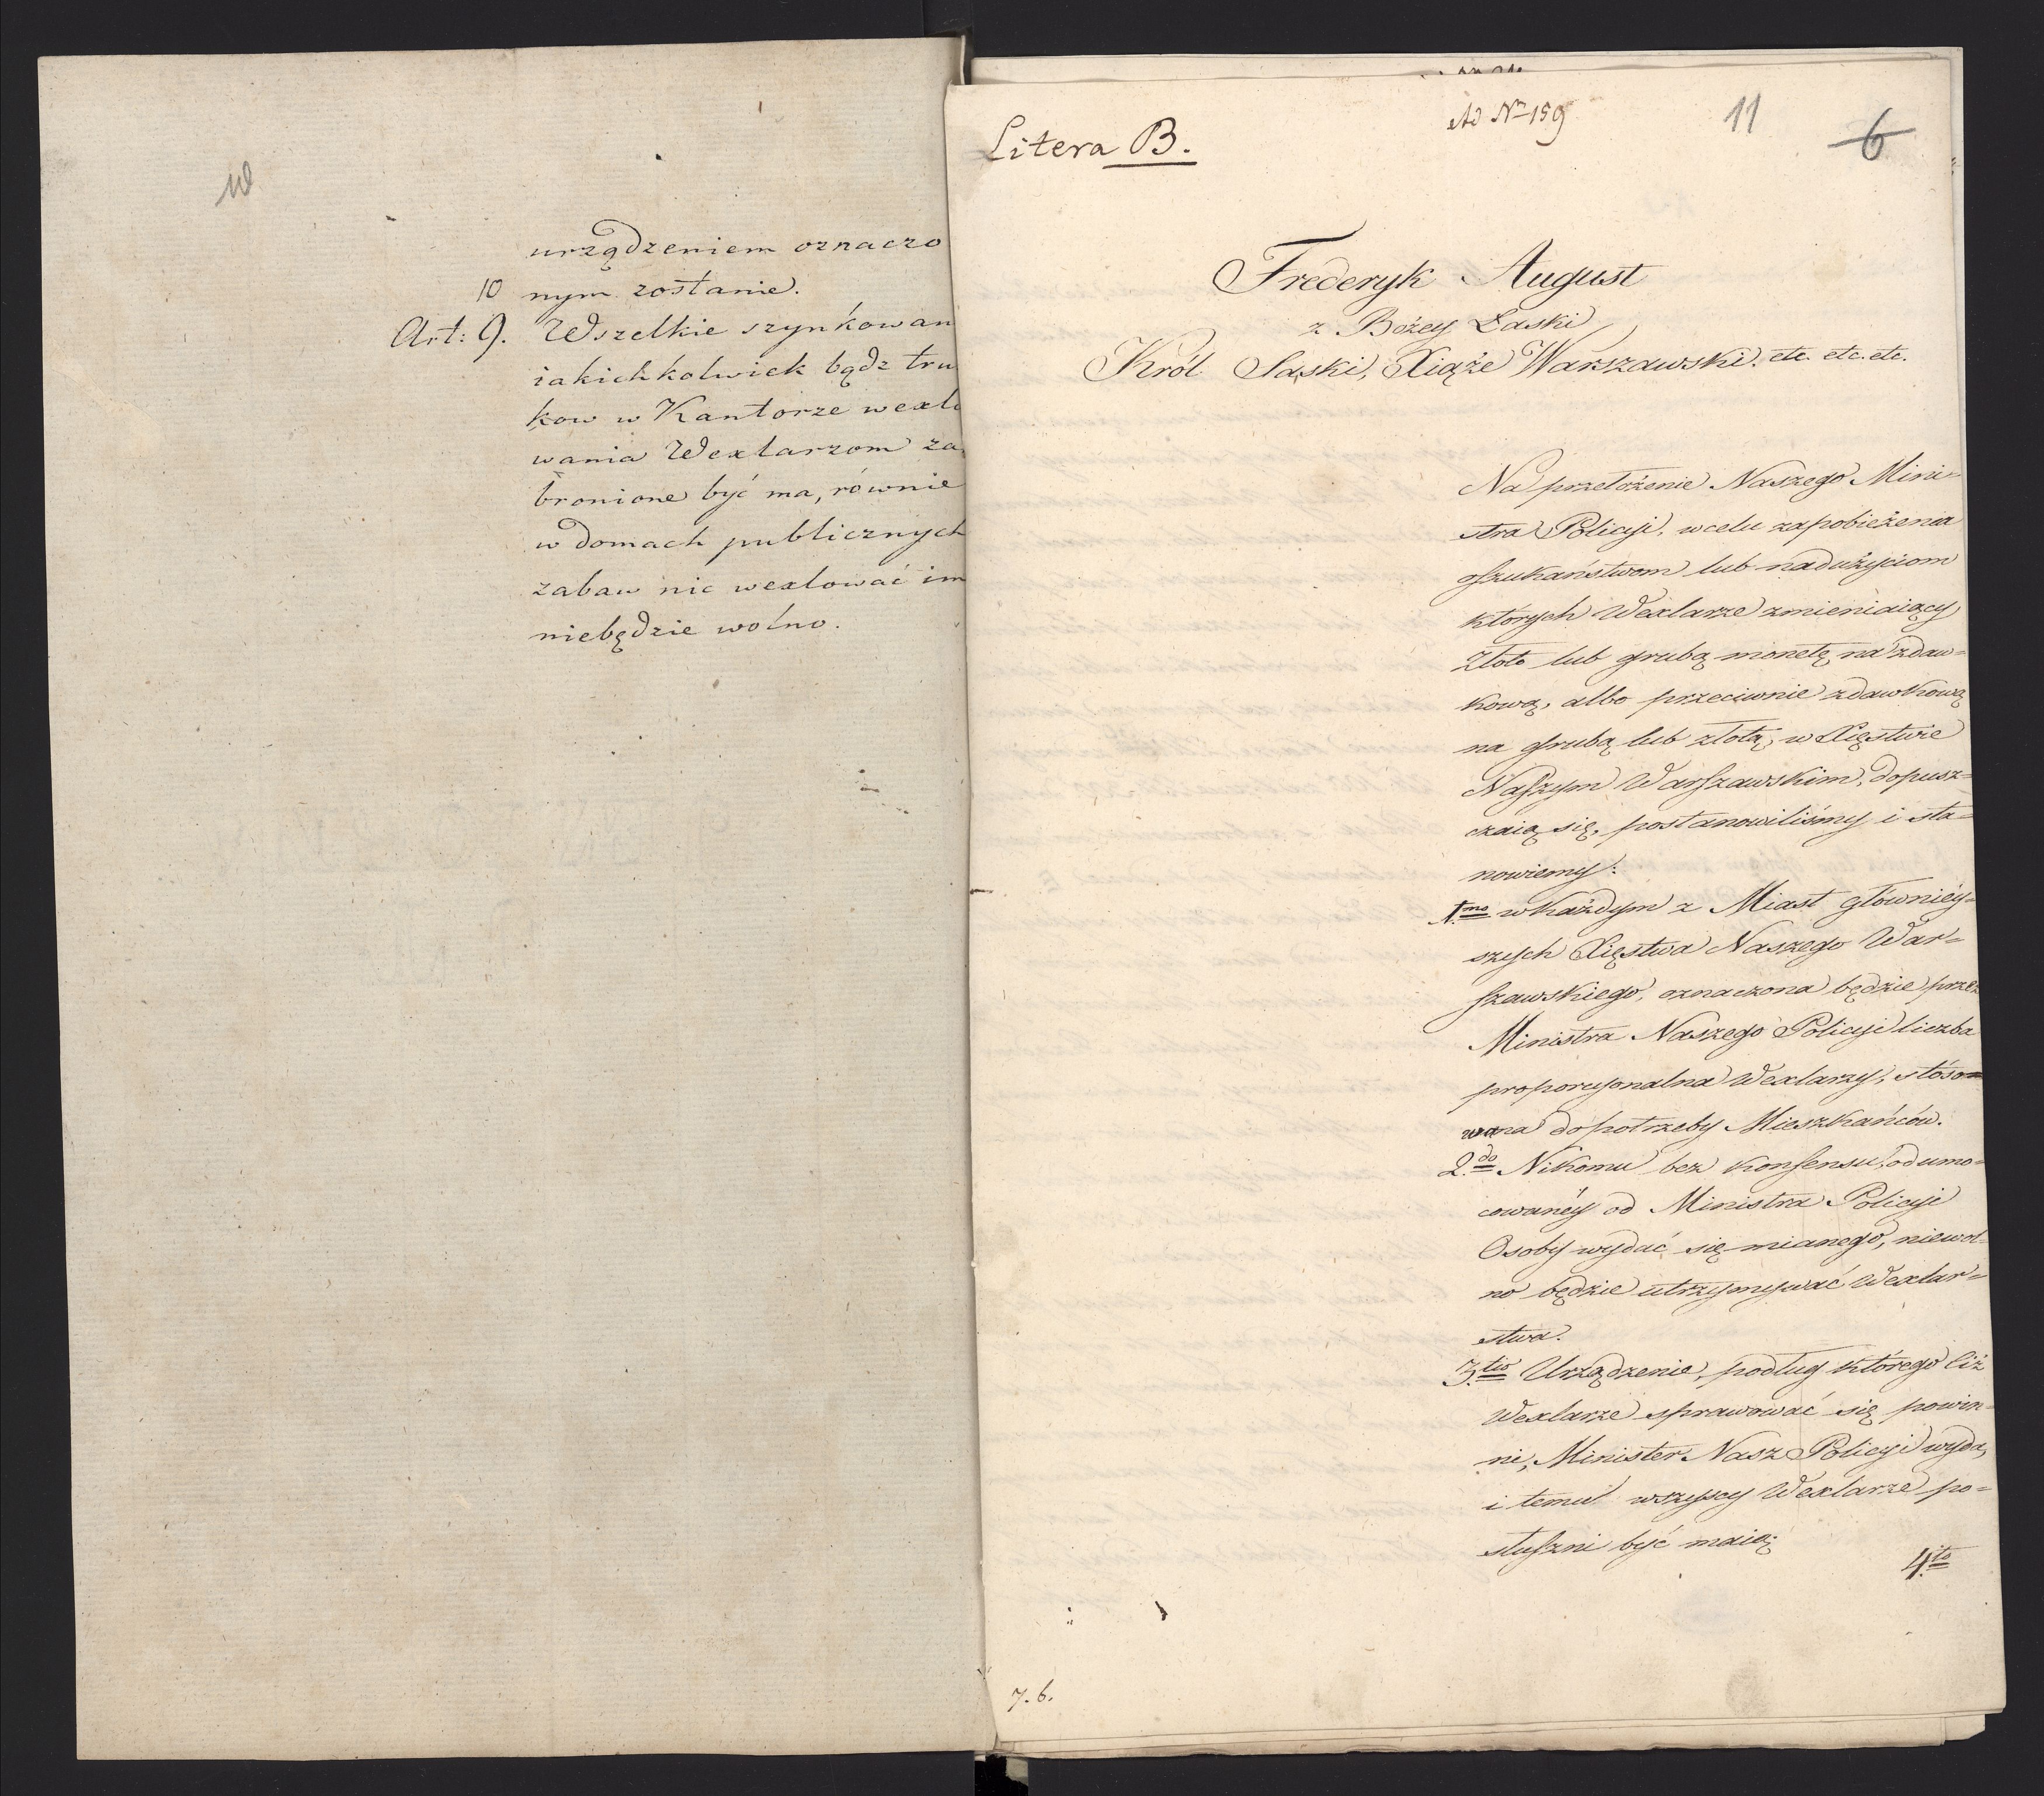 urządzeniem oznaczo
10 nym zostanie.
Art: 9. Wszelkie szynkowan
iakichkolwiek bądź tru
kow w Kantorze wexlo
wania Wexlarzom za
bronione być ma, równie
w domach publicznych
zabaw nic wexlować im
niebędzie wolno.
Litera B.
Ad Nrm 159
11
6
Frederyk August
z Bożey Łaski
Król Saski, Xiąże Warszawski. etc. etc. etc.
Na przełożenie Naszego Mini-
stra Policyi, w celu zapobieżenia
oszukaństwom lub nadużyciom
których Wexlarze zmieniaiący
złoto lub grubą monetę na zdaw=
kową, albo przeciwnie zdawkową
na grubą lub złotą, w Xięstwie
Naszym Warszawskim, dopusz=
czaią się, postanowiliśmy i sta=
nowiemy:
1mo w każdym z Miast głowniéy=
szych Xięstwa Naszego War=
szawskiego, oznaczona będzie przez
Ministra Naszego Policyi liczba
proporcyonalna Wexlarzy, stóso=
wana do potrzeby Mieszkańców.
2do Nikomu bez Konsensu, od umo=
cowanéy od Ministra Policyi
Osoby wydać się mianego, niewol=
no będzie utrzymywać Wexlar=
stwa.
3tio Urządzenie, podług którego ciż
Wexlarze sprawować się powin=
ni, Minister Nasz Policyi wyda,
i temu wszyscy Wexlarze po=
słuszni być maią;
4to
7. b.